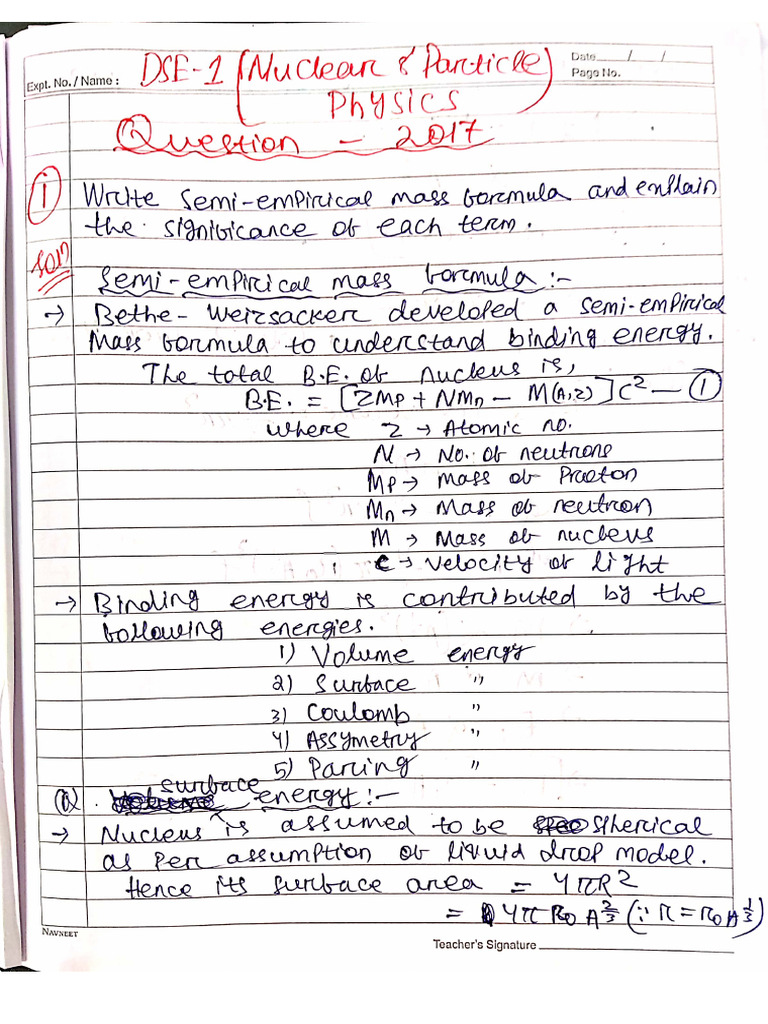 Expt. No. / Name : DSE-1 (Nuclear & Particle Physics)
Date / /
Page No.
Question - 2017
① Write semi-empirical mass formula and enplain
the significance of each term.
Soln
Semi-empirical mass formula :-
→ Bethe-Weizsacker developed a semi-empirical
Mass formula to understand binding energy.
The total B.E. of nucleus is,
B.E. = [ZMp + NMn - M(A,Z)]C² — ①
where Z → Atomic no.
N → No. of neutrons
Mp → Mass of Proton
Mn → Mass of neutron
M → Mass of nucleus
C → velocity of light
→ Binding energy is contributed by the
following energies.
1) Volume energy
2) Surface "
3) Coulomb "
4) Assymetry "
5) Paring "
surface energy :-
→ Nucleus is assumed to be spherical
as per assumption of liquid drop model.
Hence its surface area = 4πR²
= 4πR₀A^2/3 (∵ R = R₀A^1/3)
NAVNEET
Teacher's Signature